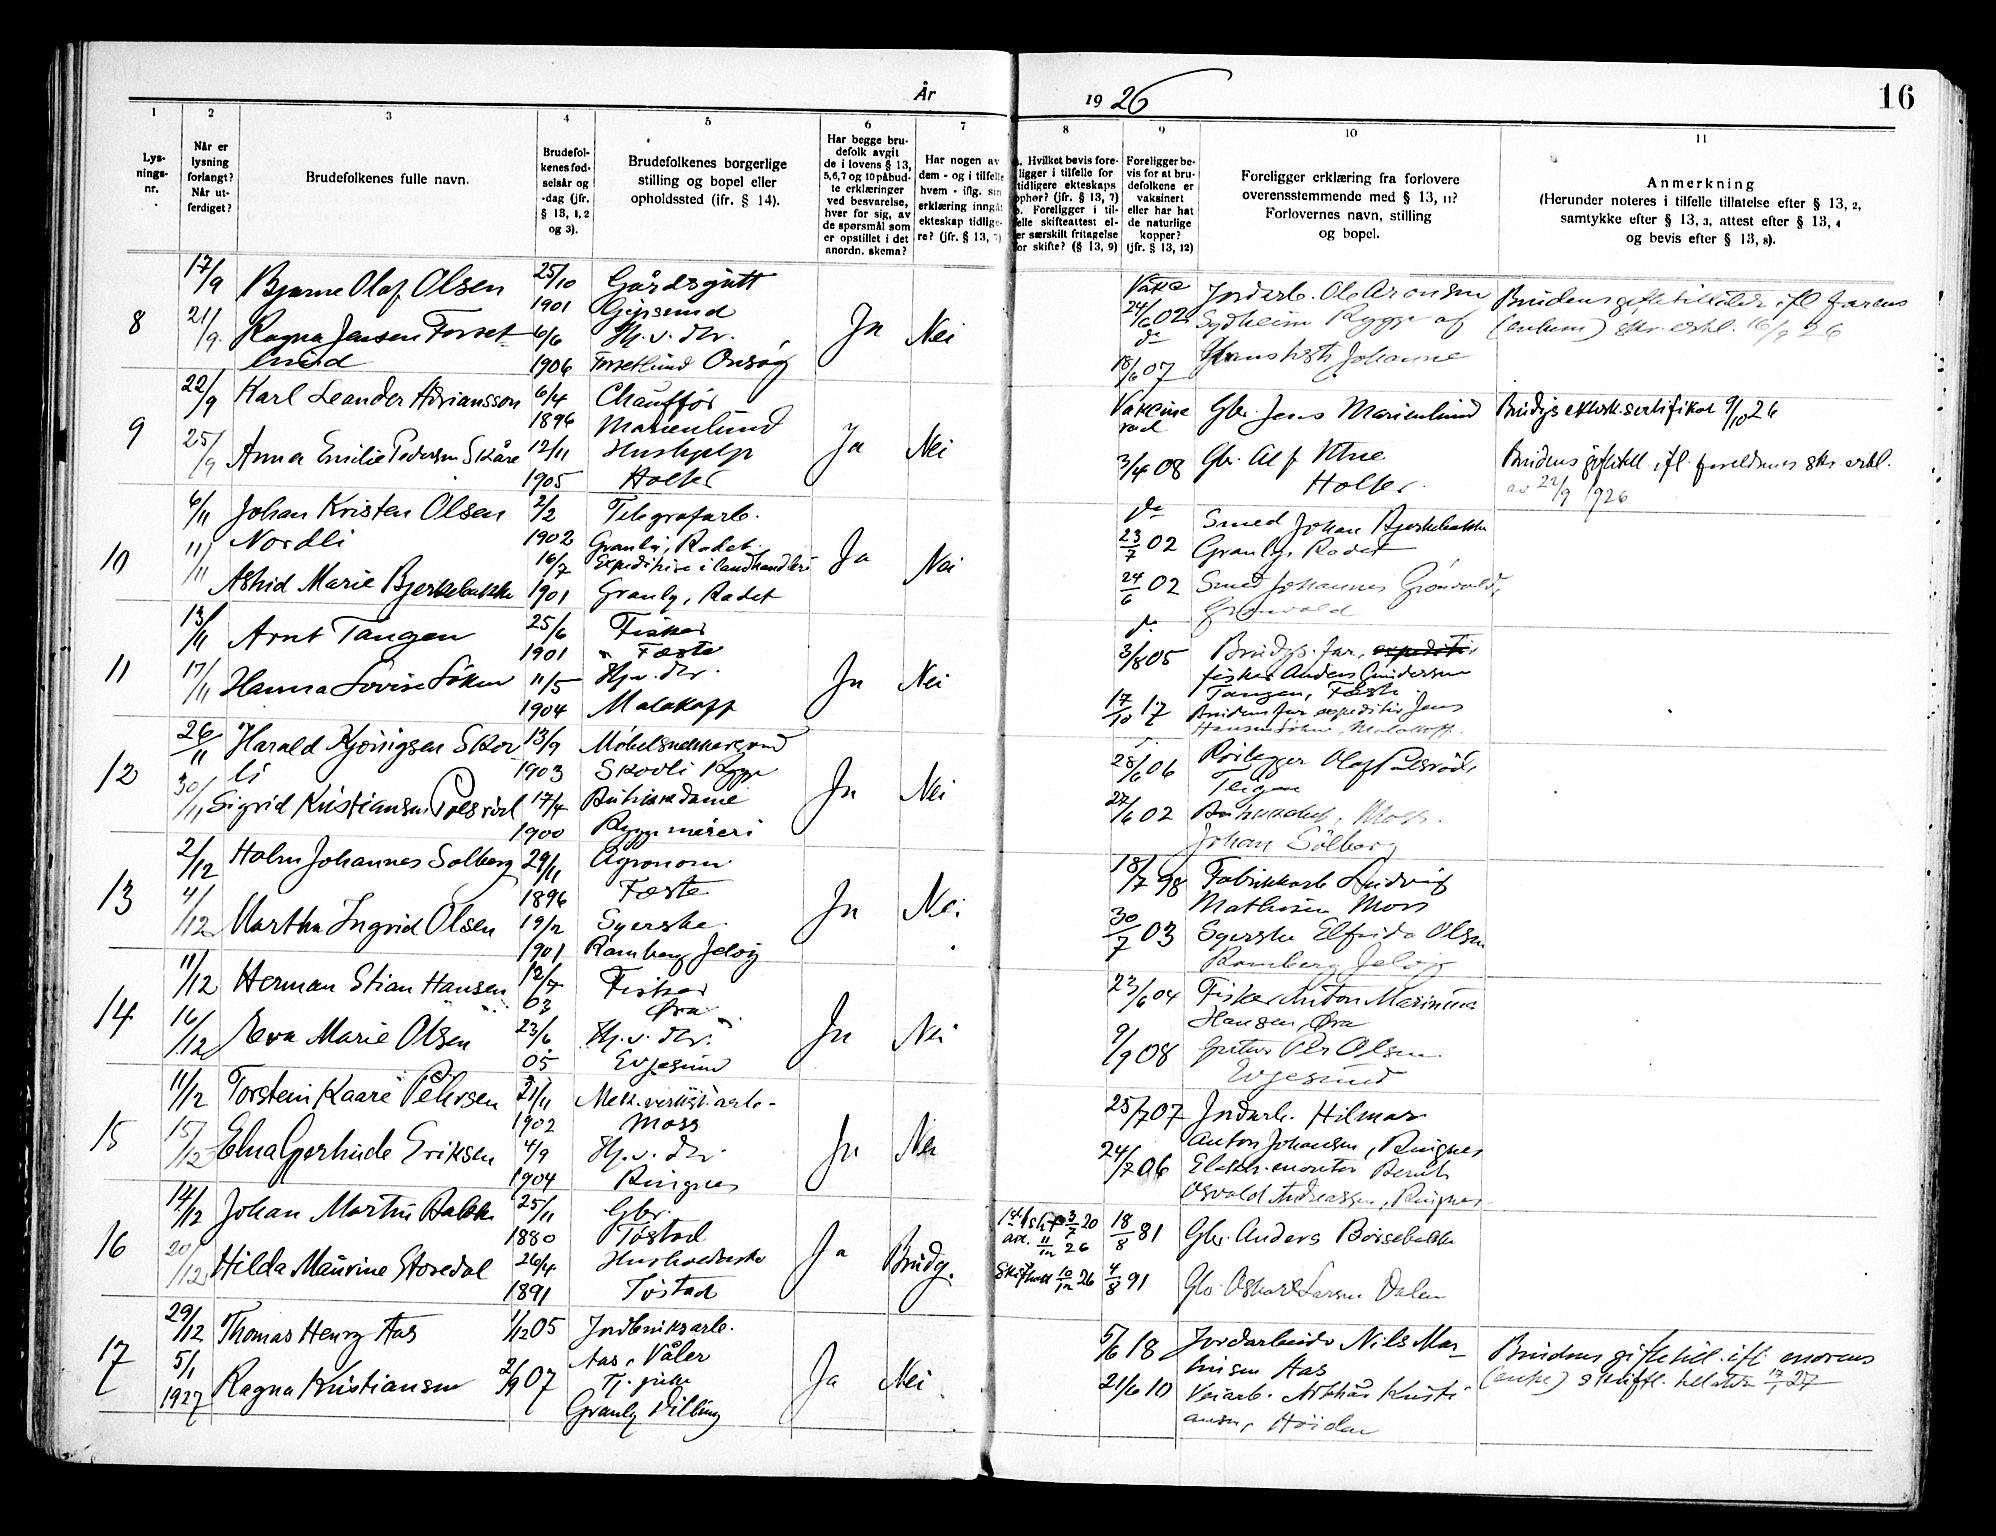 År 1926
16
1 2 3 4 5 6 7 8 9 10 11
Lys-
nings-
nr.
Når er
lysning
forlangt?
Når ut-
ferdiget?
Brudefolkenes fulle navn.
Brudefol-
kenes fød-
selsår og
-dag (jfr.
§ 13, 1, 2
og 3).
Brudefolkenes borgerlige
stilling og bopel eller
opholdssted (ifr. § 14).
Har begge bru-
defolk avgit
de i lovens § 13,
5,6,7 og 10 påbud-
te erklæringer
ved besvarelse,
hver for sig, av
de spørsmål som
er opstillet i det
anordn. skema?
Har nogen av
dem - og i tilfelle
hvem - iflg. sin
erklæring inngåt
ekteskap tidlige-
re? (jfr. § 13,
Hvilket bevis fore-
ligger i tilfelle for
tidligere ekteskaps
ophør? (jfr. § 13, 7)
Foreligger i til-
felle skifteattest el-
er særskilt fritagelse
for skifte? (§ 13, 9)
Foreligger be-
vis for at bru-
defolkene er
vaksinert
eller har hat
de naturlige
kopper?
(jfr. § 13, 12)
Foreligger erklæring fra forlovere
overensstemmende med § 13, 11?
Forlovernes navn, stilling
og bopel.
Anmerkning
(Herunder noteres i tilfelle tillatelse efter § 13, 2,
samtykke efter § 13, 3, attest efter § 13, 4
og bevis efter § 13, 8).
8
17/9
21/9.
Bjarne Olaf Olsen
Ragna Jensen Forset-
lund
25/10
1901
6/6
1906
Gårdsgutt
Hj. v. dtr.
Forsetlund Onsøy
Ja
Nei
24/6 02
do
18/6 07
Jordarb. Ole Aronsen
Sydheim Rygge
Johanne
Brudens giftetillatelse ifl farens
skr. erkl. 16/9 26
9
22/9
25/9
Karl Leander Adriansson
Anna Emilie Pedersen Skåre
6/4
1896
12/11
1905
Chauffør
Marienlund
Hushjelp
Holter
Ja
Nei
Vaksine
3/4 08
Gbr. Jens Marienlund
Gbr. Alf
Holter.
Brudgs ektesk.sertifikat 9/10 26
Brudens giftetill. ifl. foreldrenes skr. erkl.
av 22/9 1926
10
6/11
11/11
Johan Kristen Olsen
Nordli
Astrid Marie Bjerkebakke
2/2
1902
16/7
1901
Telegrafarb.
Granli, Radet.
Expeditrise i landhandleri
Granly, Radet
Ja
Nei
do
23/7 02
24/6 02
Smed Johan Bjerkebakke
Granly, Radet
Smed Johannes Grönvold,
Grönvold
11
13/11
17/11
Arnt Tangen
Hanna Lovise Søken
25/6
1901
11/5
1904
Fisker
Fæste
Hj. v. dtr.
Malakoff
Ja
Nei
do
3/8 05
17/10 17
Brudgs. far,
fisker Anders Gundersen
Tangen, Fæste
Brudens far expeditør Jens
Hansen Søken, Malakoff.
12
26/11
30/11
Harald Kjönigsen Skov
li
Sigrid Kristiansen Pålsrød
13/9
1903
17/4
1900
Møbelsnekkersvend
Skovli Rygge
Butikkdame
Rygge meieri
Ja
Nei
28/6 06
27/6 02
Rørlegger Olaf Pålsrød,
Teigen
Moss.
Johan Sölberg
13
2/12
4/12
Holm Johannes Solberg
Martha Ingrid Olsen
29/11
1896
19/2
1901
Agronom
Fæste
Syerske
Ramberg Jeløy
Ja
Nei
18/7 98
30/7 03
Fabrikkarb Ludvig
Mathisen Moss
Syerske Elfrida Olsen
Ramberg, Jeløy
14
11/12
16/12
Herman Stian Hansen
Eva Marie Olsen
12/7
03
23/6
05
Fisker
Øra
Hj. v. dtr.
Evjesund
Ja
Nei
23/6 04
9/9 08
Fisker Anton Marinius
Hansen, Øra
Olsen
Evjesund
15
11/12
15/12
Torstein Kaare Pettersen
Elna Gjerthrude Eriksen
21/11
1902
4/9
1904
Mek. verkst. arb.
Moss
Hj. v. dtr.
Ringnes
Ja
Nei
25/7 07
24/7 06
Jordarb. Hilmar
Anton Johansen, Ringnes
Elektr. montør Bernt
Osvald Andreassen, Ringnes
16
14/12
20/12
Johan Martin Bakke
Hilda Maurine Storedal
25/11
1880
26/4
1891
Gbr.
Tøstad
Husholderske
Tøstad
Ja
Brudg.
11/12 26
10/12 26
18/8 81
4/8 91
Gbr. Anders Börsebakke
Gbr Oskar Larsen Dalen
17
29/12
5/1
1927
Thomas Henry Aas
Ragna Kristiansen
1/12 05
2/9 07
Jordbruksarb.
Aas, Våler
Tj. pike
Granly Dilling
Ja
Nei
5/6 18
21/6 10
Jordarbeider Nils Mar-
tinsen Aas
Veiarb. Kristi-
ansen, Høiden
Brudens giftetill. ifl. morens
(enke) skriftl. tillatelse 17/1 27